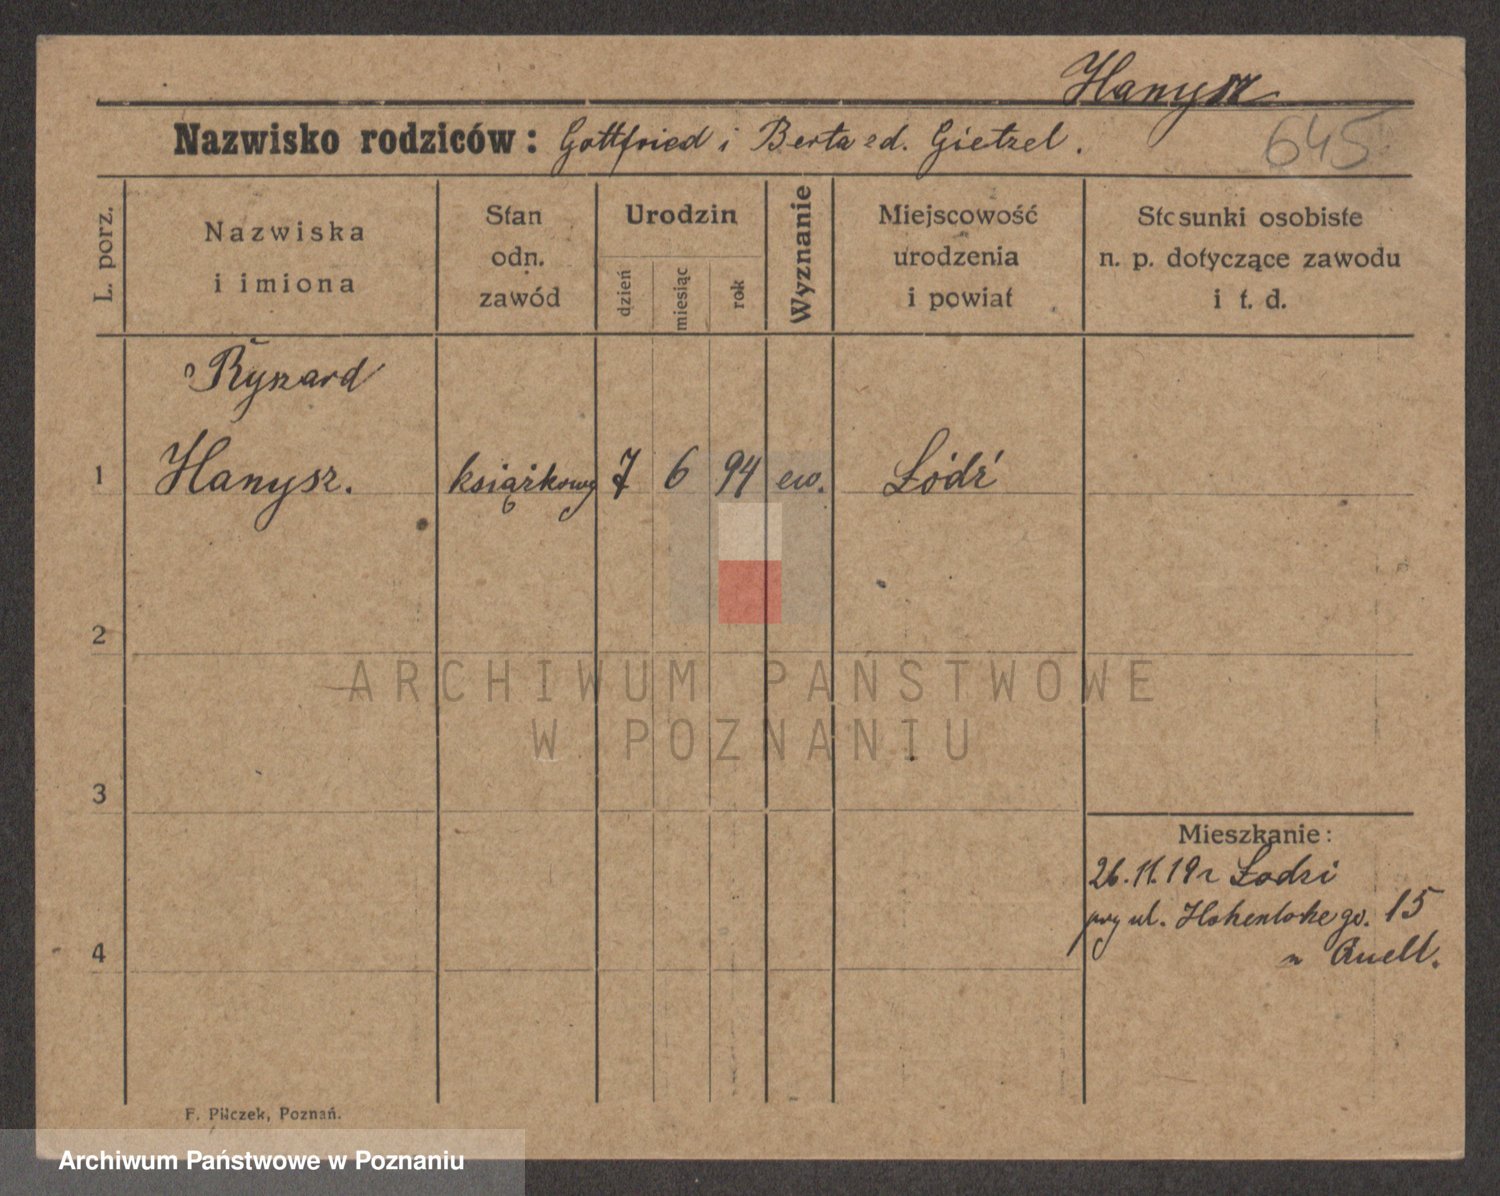 Hanysz
Nazwisko rodziców: Gottfried i Berta zd. Gietzel.
645
L. porz.
Nazwiska
i imiona
Stan
odn.
zawód
Urodzin
dzień
miesiąc
rok
Wyznanie
Miejscowość
urodzenia
i powiat
Stosunki osobiste
n. p. dotyczące zawodu
i t. d.
Ryszard
1 Hanysz. książkowy 7 6 94 ew. Łódź
2
ARCHIWUM PAŃSTWOWE
W POZNANIU
3
Mieszkanie:
26.11.19 z Łodzi
przy ul. Hohenlohego. 15
4
F. Pilczek, Poznań.
Archiwum Państwowe w Poznaniu